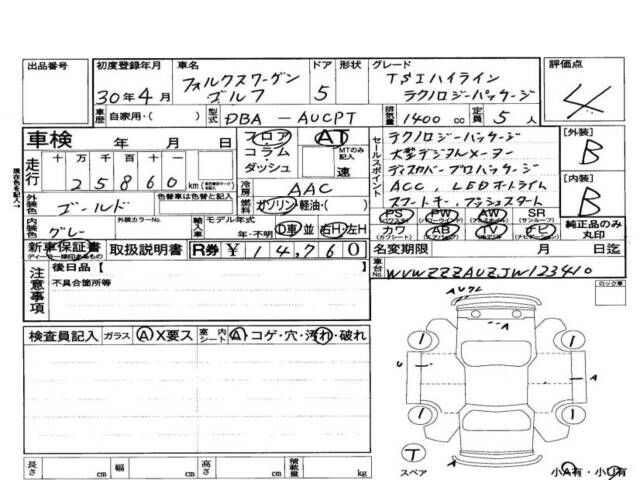 出品番号
初度登録年月
30年4月
車名
フォルクスワーゲン
ゴルフ
ドア
5
形状
グレード
TSIハイライン
テクノロジーパッケージ
評価点
4
車歴 自家用・( )
型式 DBA-AUCPT
排気量 1400 cc
定員 5 人
車検 年 月 日
フロア
コラム・
ダッシュ
AT
MTのみ記入
速
セールスポイント
テクノロジーパッケージ
大型デジタルメーター
ディスカバープロパッケージ
ACC, LEDオートライム
スマートキー, プッシュスタート
[外装]
B
[内装]
B
走行
十 万 千 百 十 一
25860 km
冷房 AAC
燃料 ガソリン・軽油・( )
外装色 ゴールド
色替車は色替と記入
内装色 グレー
外装カラーNo.
輸入車 モデル年式
年・不明
D車 並 右H・左H
PS PW AW SR
(パワステ) (パワーウィンドウ) (サンルーフ)
カワ AB TV ナビ
(カワシート) (エアバッグ) (テレビ) (ナビゲーション)
純正品のみ
丸印
新車保証書
取扱説明書
R券 ¥ 14,760
名変期限 月 日迄
車台No. WVWZZZAUZJW123410
注意事項
後日品【
不具合箇所等
ロック車
検査員記入 ガラス A X要ス 室内シート A コゲ・穴・汚れ・破れ
Aウスレ
U
A
A
1
1
1
1
T
スペア
小A有・小U有
長さ cm 幅 cm 高さ cm 積載量 kg
現在色を記入→